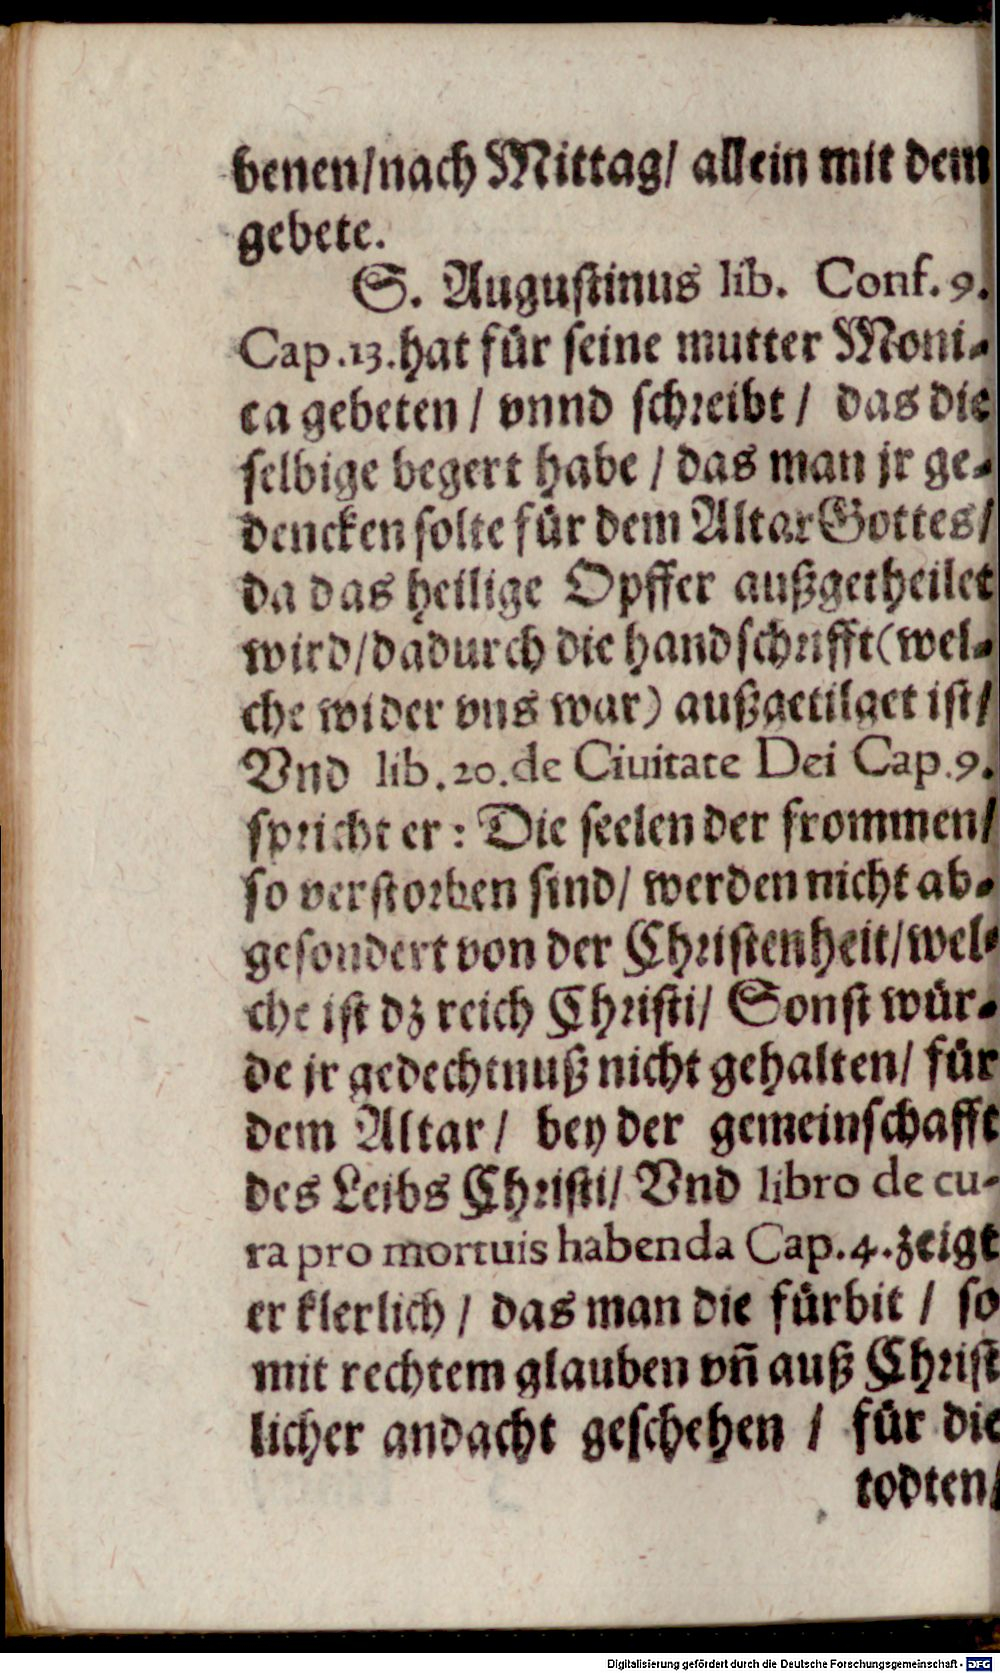 benen/nach Mittag/ allein mit dem
gebete.
S. Augustinus lib. Conf. 9.
Cap. 13. hat für seine mutter Moni-
ca gebeten / vnnd schreibt / das die
selbige begert habe / das man jr ge-
dencken solte für dem Altar Gottes/
da das heilige Opffer außgetheilet
wird/dadurch die handschrifft(wel-
che wider vns war) außgetilget ist/
Vnd lib. 20. de Ciuitate Dei Cap. 9.
spricht er : Die seelen der frommen/
so verstorben sind/ werden nicht ab-
gesondert von der Christenheit/wel-
che ist dz reich Christi/ Sonst wür-
de jr gedechtnuß nicht gehalten/ für
dem Altar / bey der gemeinschafft
des Leibs Christi/ Vnd libro de cu-
ra pro mortuis habenda Cap. 4. zeigt
er klerlich / das man die fürbit / so
mit rechtem glauben vñ auß Christ
licher andacht geschehen / für die
todten/
Digitalisierung gefördert durch die Deutsche Forschungsgemeinschaft - DFG